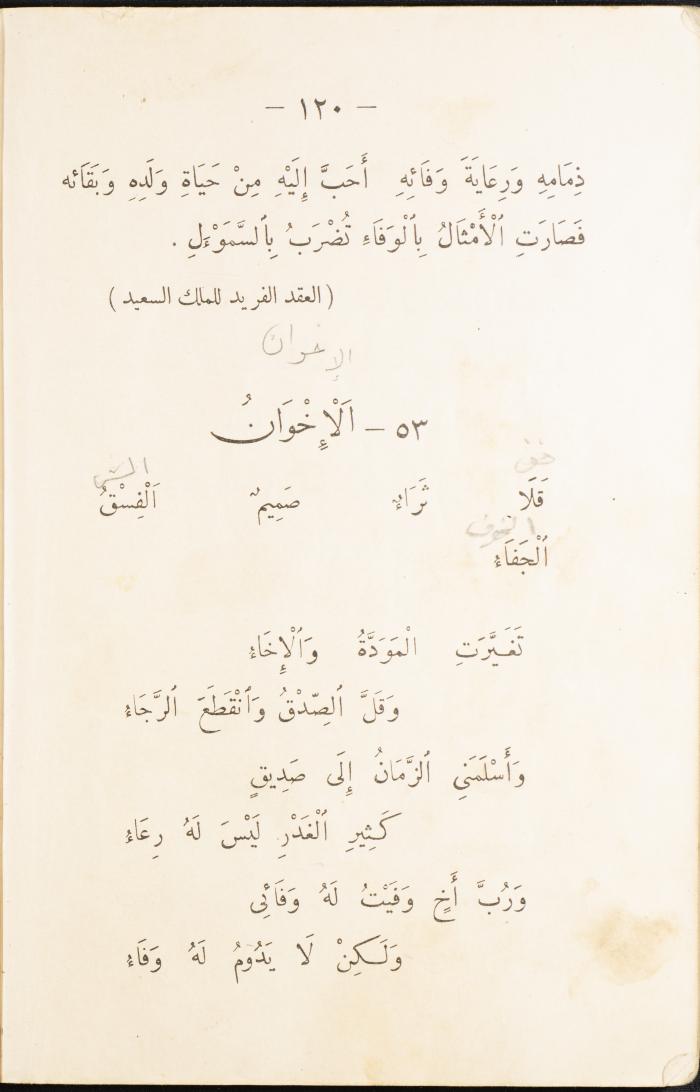 — ١٢٠ —
ذِمَامِهِ وَرِعَايَةَ وَفَائِهِ أَحَبَّ إِلَيْهِ مِنْ حَيَاةِ وَلَدِهِ وَبَقَائه
فَصَارَتِ ٱلْأَمْثَالُ بِٱلْوَفَاءِ تُضْرَبُ بِٱلسَّمَوْءَلِ .
( العقد الفريد للملك السعيد )
الإخوان
٥٣ – اَلْإِخْوَانُ
قَلَا ثَرَاءٌ صَمِيمٌ اَلْفِسْقُ
ٱلْجَفَاءُ
تَغَيَّرَتِ الْمَوَدَّةُ وَٱلْإِخَاءُ
وَقَلَّ ٱلصِّدْقُ وَٱنْقَطَعَ ٱلرَّجَاءُ
وَأَسْلَمَنِي ٱلزَّمَانُ إِلَى صَدِيقٍ
كَثِيرِ ٱلْغَدْرِ لَيْسَ لَهُ رِعَاءُ
وَرُبَّ أَخٍ وَفَيْتُ لَهُ وَفَائِي
وَلَكِنْ لَا يَدُومُ لَهُ وَفَاءُ